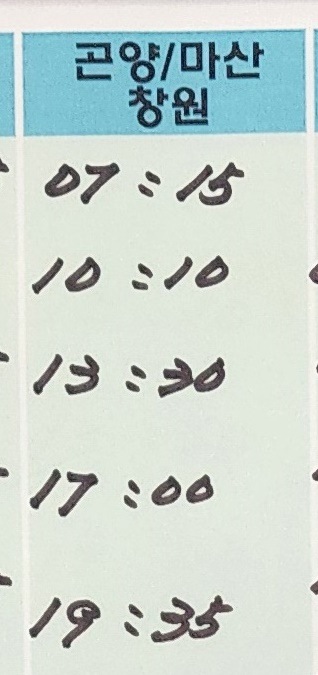 곤양/마산
창원
07:15
10:10
13:30
17:00
19:35